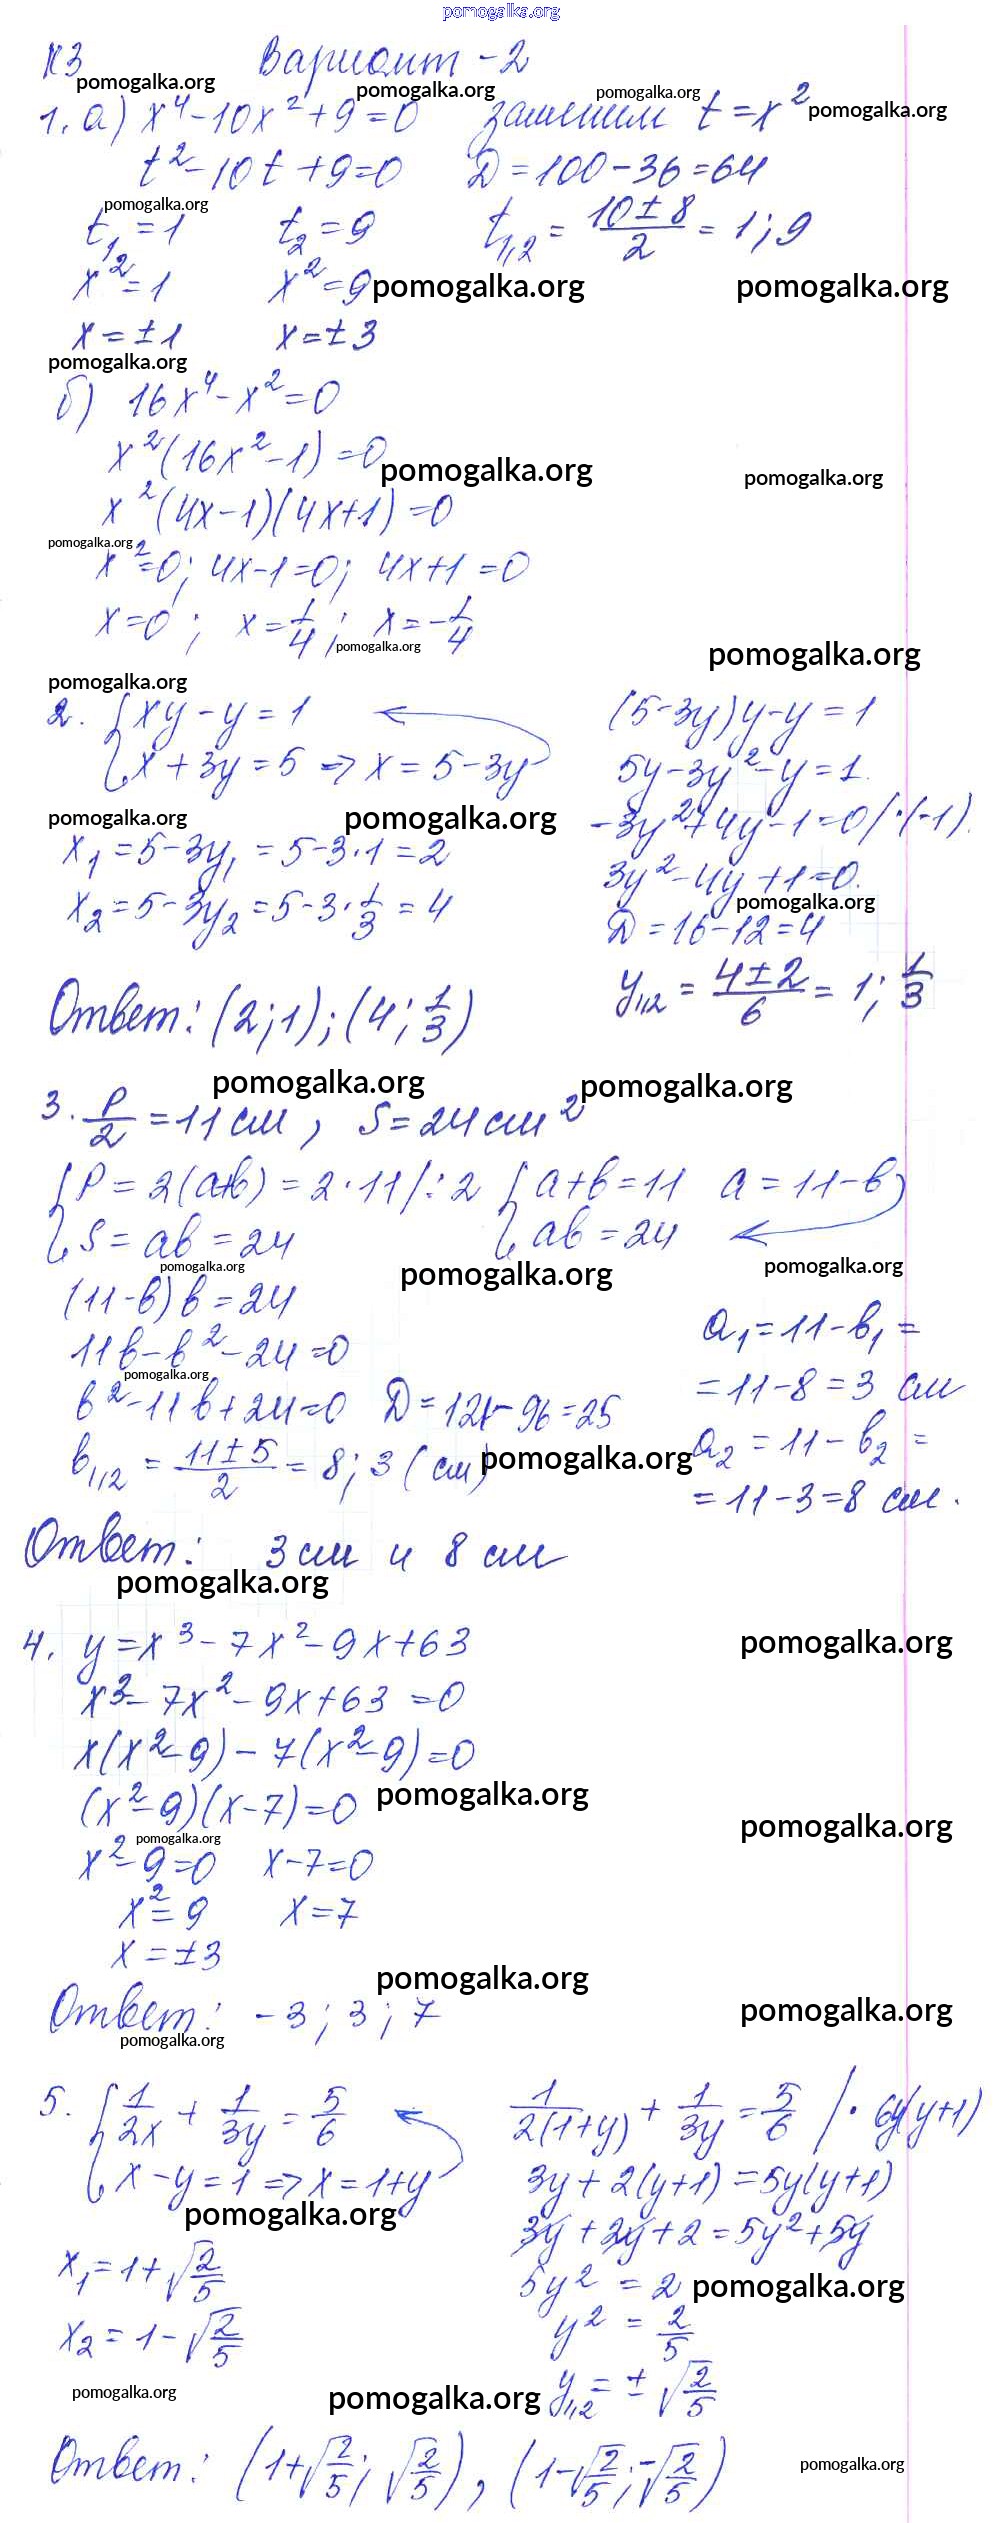 pomogalka.org
К3 Вариант -2
pomogalka.org pomogalka.org pomogalka.org pomogalka.org
1. а) x⁴-10x²+9=0 заменим t=x²
t²-10t+9=0 D=100-36=64
pomogalka.org
t₁=1 t₂=9 t₁,₂ = (10±8)/2 = 1; 9
x²=1 x²=9 pomogalka.org pomogalka.org
x=±1 x=±3
pomogalka.org
б) 16x⁴-x²=0
x²(16x²-1)=0
pomogalka.org pomogalka.org
x²(4x-1)(4x+1)=0
pomogalka.org
x²=0; 4x-1=0; 4x+1=0
x=0; x=1/4; x=-1/4
pomogalka.org pomogalka.org
pomogalka.org
2. { xy-y=1 (5-3y)y-y=1
x+3y=5 => x=5-3y 5y-3y²-y=1.
pomogalka.org pomogalka.org -3y²+4y-1=0/·(-1)
x₁=5-3y₁=5-3·1=2 3y²-4y+1=0.
pomogalka.org
x₂=5-3y₂=5-3·1/3=4 D=16-12=4
y₁,₂ = (4±2)/6 = 1; 1/3
Ответ: (2;1); (4; 1/3)
pomogalka.org pomogalka.org
3. P/2 = 11 см, S=24 см²
{ P=2(a+b)=2·11/:2 { a+b=11 a=11-b
S=ab=24 ab=24
pomogalka.org pomogalka.org pomogalka.org
(11-b)b=24
11b-b²-24=0 a₁=11-b₁=
pomogalka.org
=11-8=3 см
b²-11b+24=0 D=121-96=25
a₂=11-b₂=
b₁,₂ = (11±5)/2 = 8; 3 (см) pomogalka.org
=11-3=8 см.
Ответ: 3 см и 8 см
pomogalka.org
4. y=x³-7x²-9x+63 pomogalka.org
x³-7x²-9x+63=0
x(x²-9)-7(x²-9)=0
(x²-9)(x-7)=0 pomogalka.org
pomogalka.org pomogalka.org
x²-9=0 x-7=0
x²=9 x=7
x=±3
pomogalka.org
Ответ: -3; 3; 7 pomogalka.org
pomogalka.org
5. { 1/2x + 1/3y = 5/6 1/2(1+y) + 1/3y = 5/6 /· 6y(y+1)
x-y=1 => x=1+y 3y+2(y+1)=5y(y+1)
pomogalka.org
3y+2y+2=5y²+5y
x₁=1+√2/5 5y²=2 pomogalka.org
x₂=1-√2/5 y²=2/5
pomogalka.org pomogalka.org y₁,₂=±√2/5
Ответ: (1+√2/5; √2/5), (1-√2/5; -√2/5)
pomogalka.org